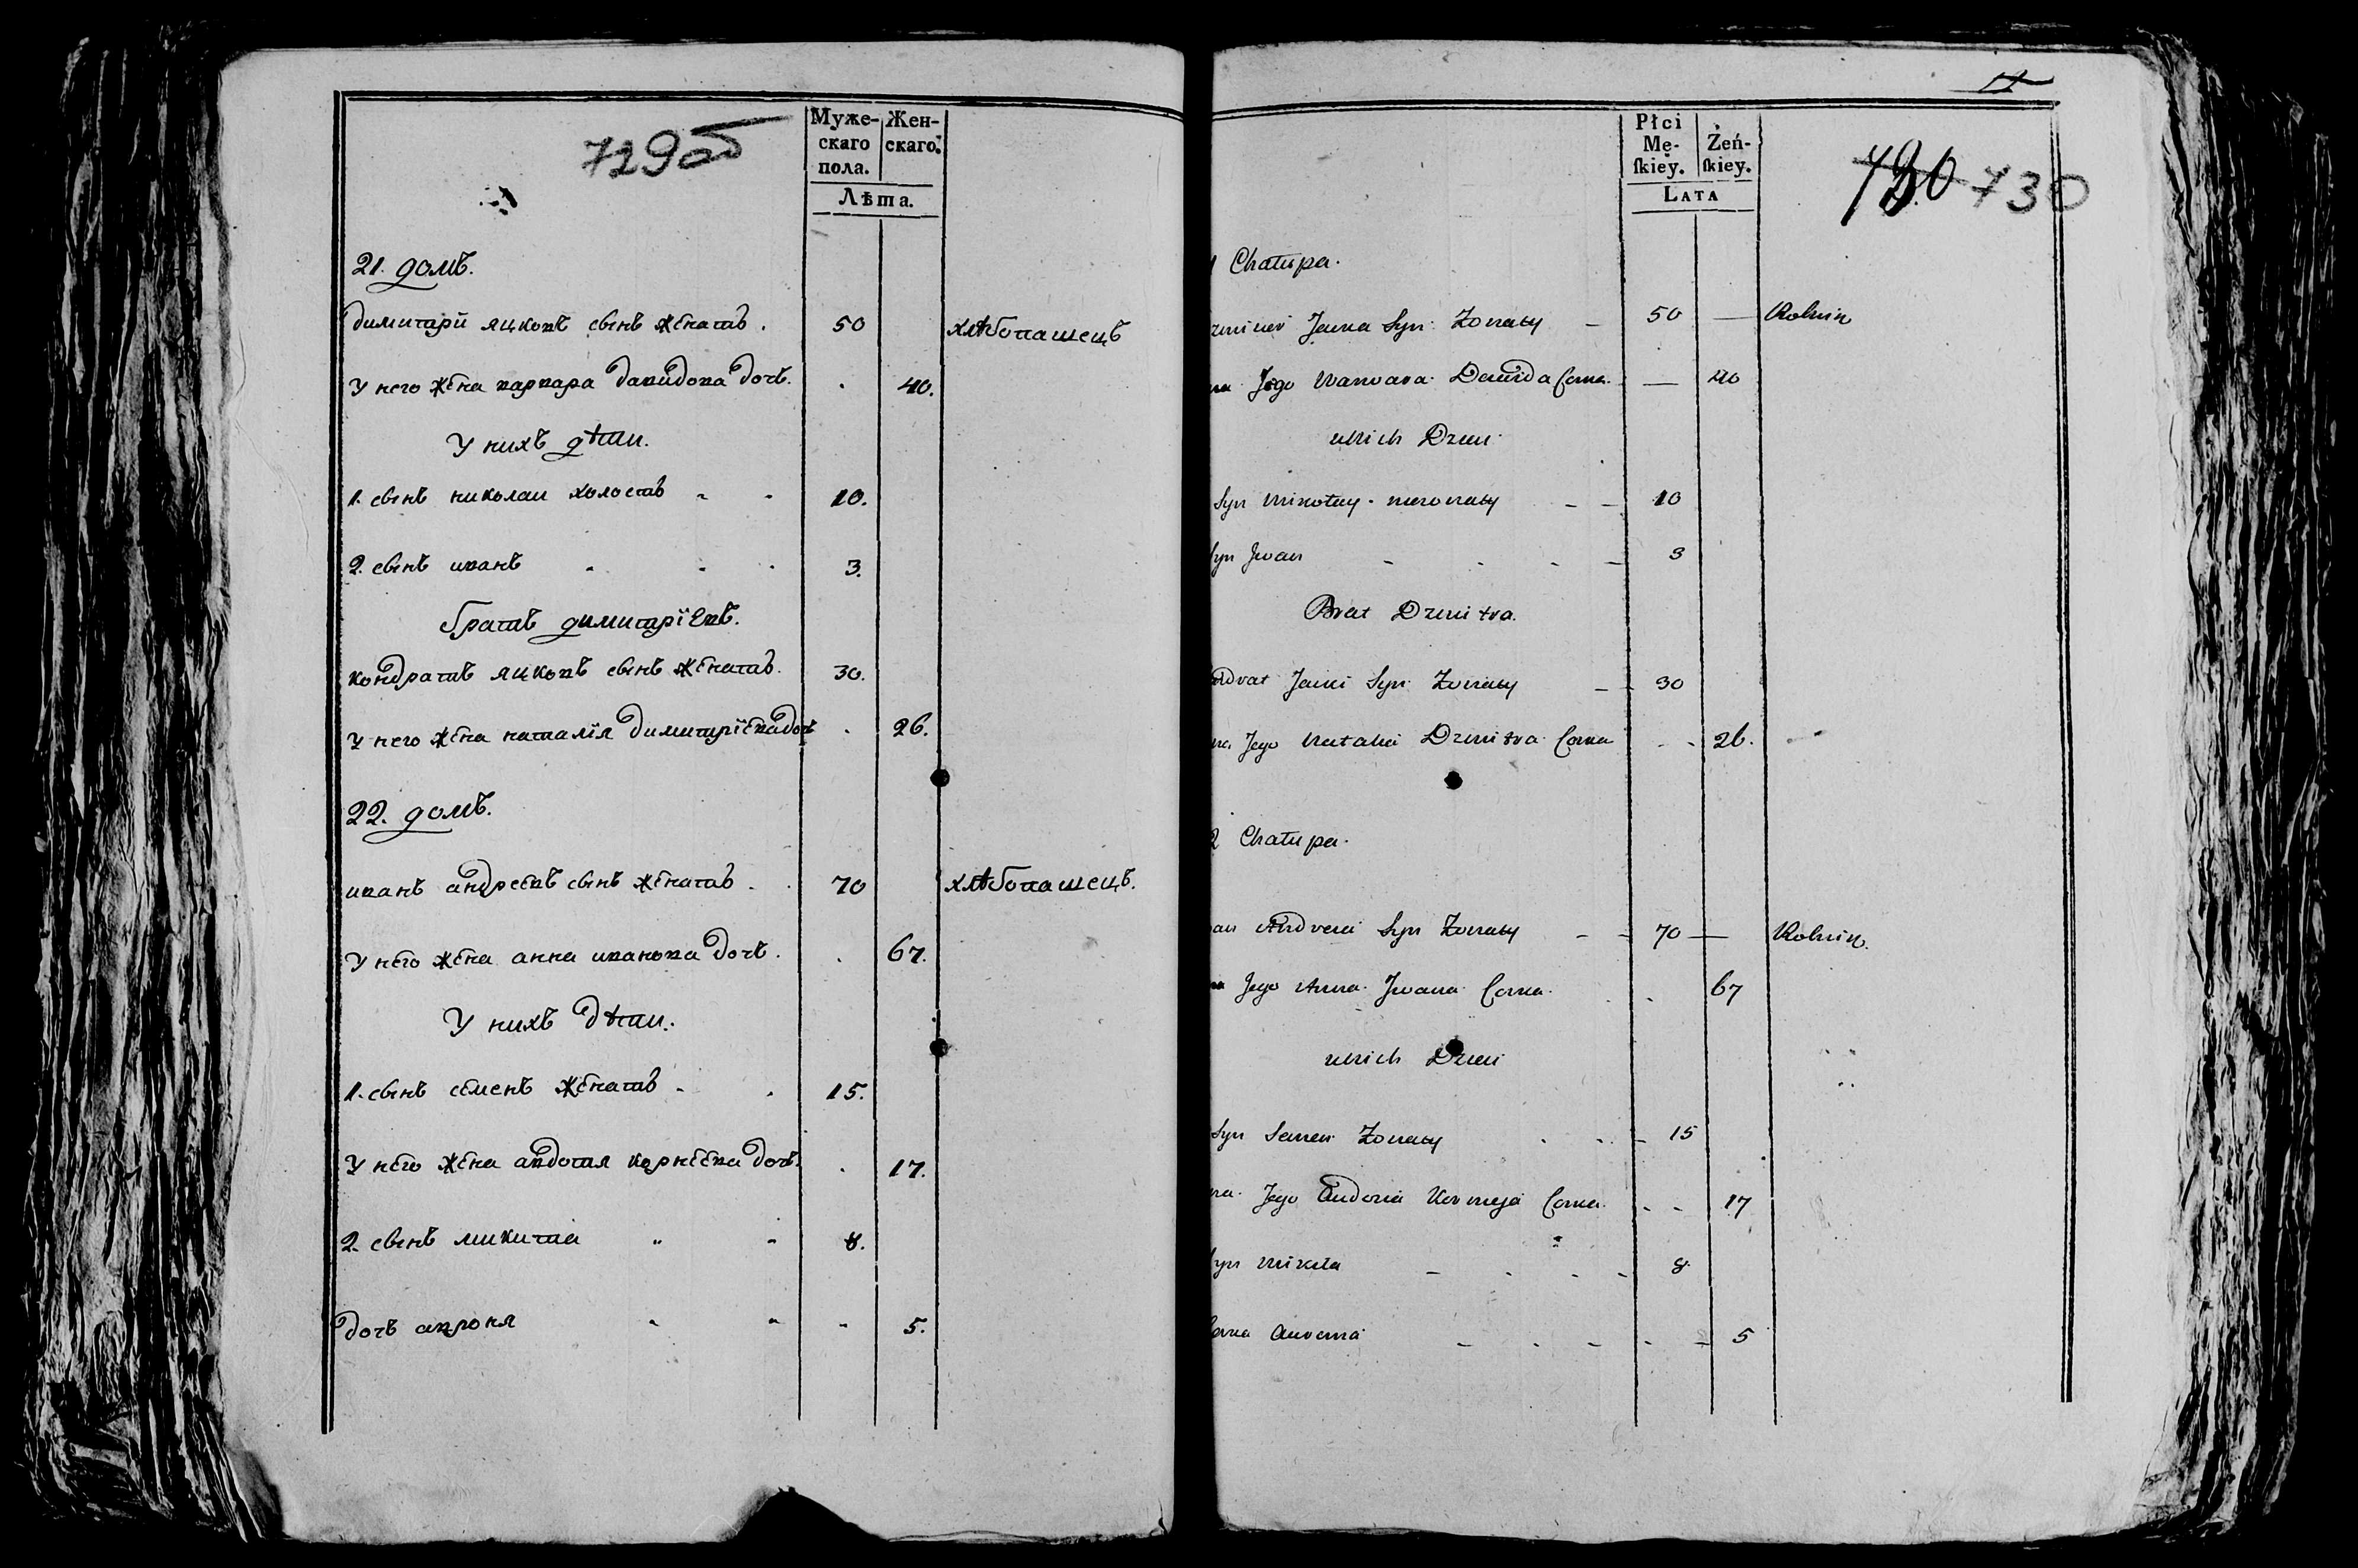 729об
Муже-
скаго
пола.
Жен-
скаго.
Лѣта.
21. домъ.
димитрїи яцковъ сынъ женатъ . 50 хлѣбопашецъ
У него жена варвара давидова дочь. . 40.
У нихъ дѣти.
1. сынъ николаи холостъ - - 10.
2. сынъ иванъ - - - 3.
братъ димитрїевъ.
кондратъ яцковъ сынъ женатъ. 30.
У него жена наталїя димитрїева дочь . 26.
22. домъ.
иванъ андреевъ сынъ женатъ . . 70 хлѣбопашецъ.
У него жена анна иванова дочь . . 67.
У нихъ дѣти.
1. сынъ семенъ женатъ - . 15.
У него жена авдотия корнеева дочь. . 17.
2. сынъ микита „ - 8.
дочь апроня - - - 5.
Płci
Mę-
ſkiey.
Żeń-
ſkiey.
LATA
730 730
Chałupa.
Jacka Syn Zonaty – 50 — Rolnik
Jego Warwara Dawida Corka. — 40
unich Dzieci
Syn Mikołay nieżonaty – – 10
Syn Jwan – - - – 3
Brat Dzmitra.
Jacki Syn Zonaty – - 30
Jego Natalia Dzmitra Corka - - 26.
2 Chałupa.
Andreia Syn Zonaty – – 70 — Rolnik.
Jego Anna Jwana Corka. . . 67
unich Dzieci
Syn Semen Zonaty . . – 15
Jego Audocia Korneja Corka. - - 17
Syn Mikita – . - - 8
Corka – . – . – 5